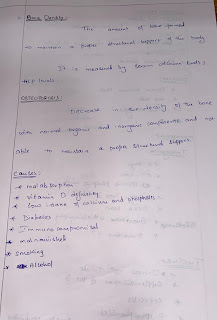 * Bone Density:
The amount of bone formed
→ maintain a proper structural support of the body
It is measured by serum calcium levels,
ALP levels.
OSTEOPOROSIS:
Decrease in bone density of the bone
with normal organic and inorganic components and not
able to maintain a proper structural support
Causes:
* malabsorption
* vitamin D deficiency
* low intake of calcium and phosphorus
* Diabetes
* Immuno compromised
* malnourished
* smoking
* Alcohol